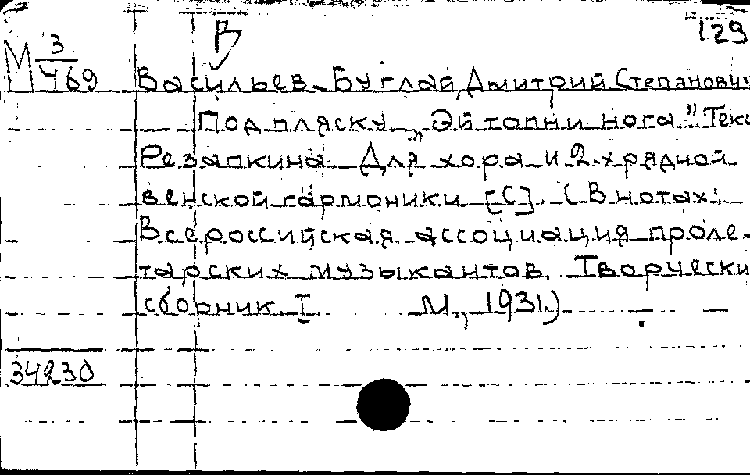 В 129
М 3/469
Васильев-Буглай, Дмитрий Степанович
Под пляску „Эй топни нога." Текс
Резапкина. Для хора и 2-х рядной
венской гармоники [C]. (В нотах:
Всероссийская ассоциация проле-
тарских музыкантов. Творчески
сборник I М., 1931.)
34230